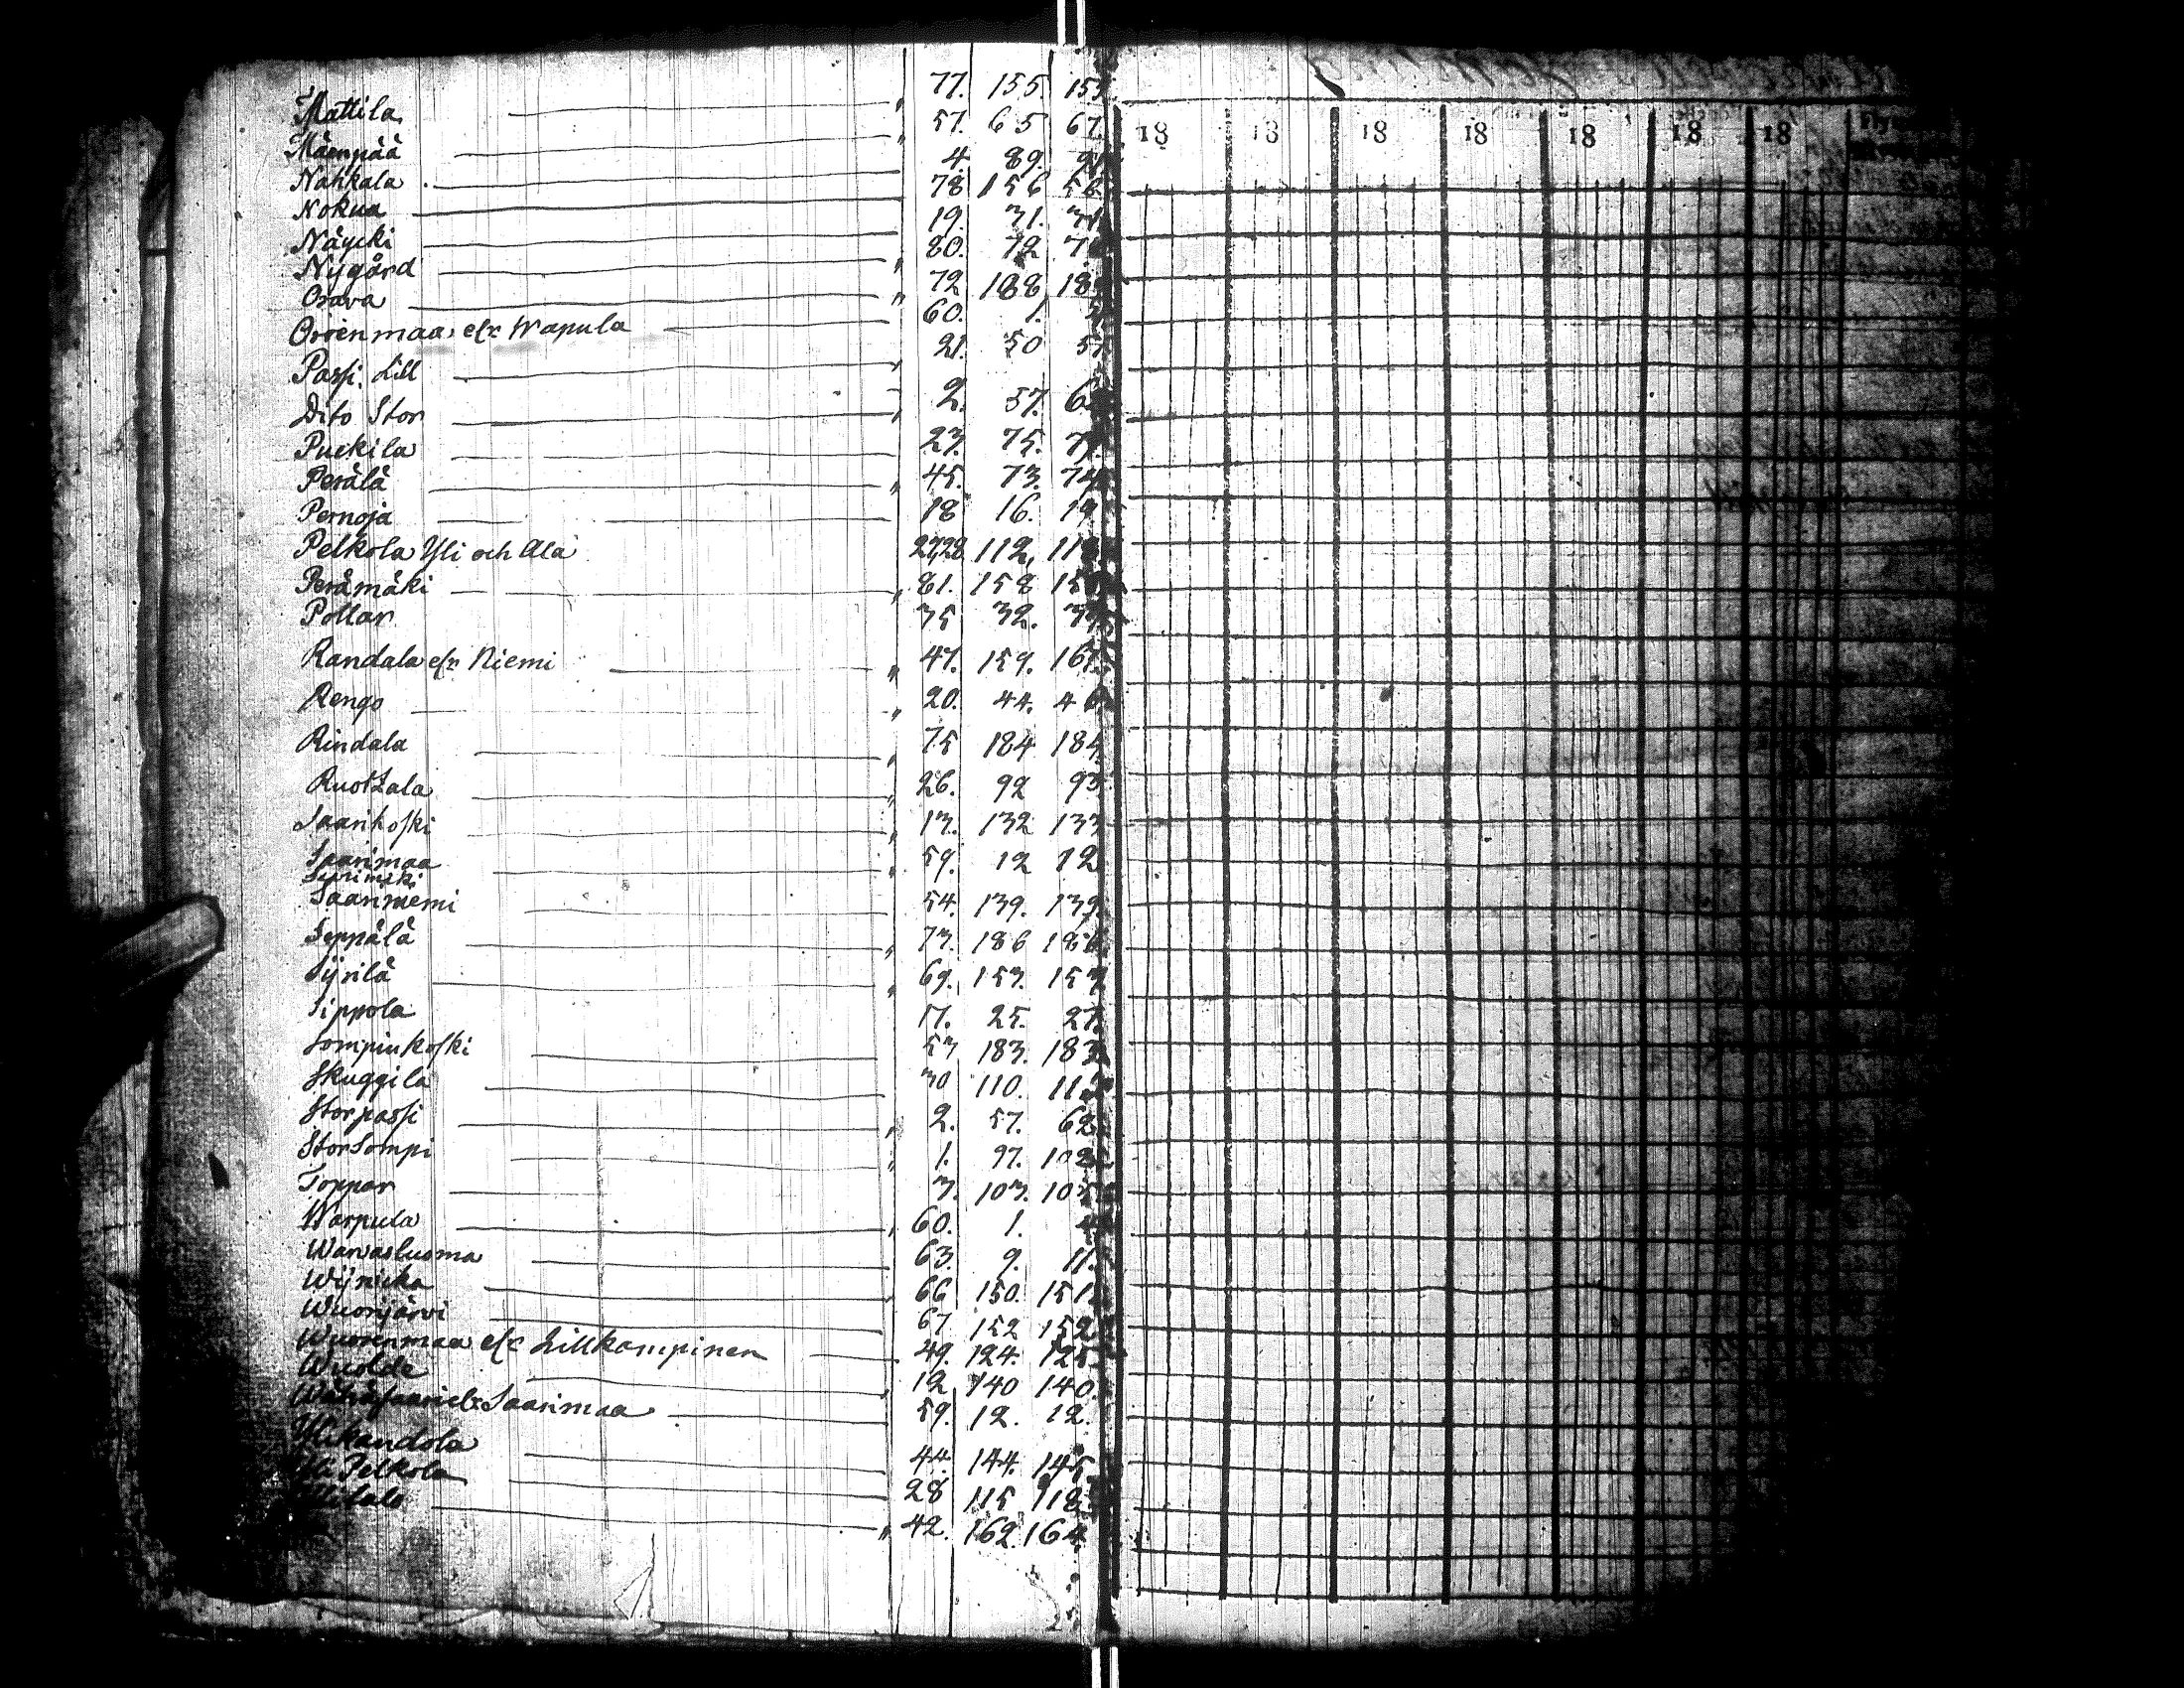 Mattila " 77. 155. 157
Mäenpää " 57. 65 67.
Nahkala 4 89. 91
Nokua 78 156 156
Näycki 19. 31. 31
Nygård " 80. 72
Orava " 72 188 18
Orrenmaa elr Wapula 60. 1.
Passi Lill " 21. 50 51
Dito Stor " 2. 57. 62
Puckila 23. 75. 77
Perälä " 45. 73. 74
Pernoja 18 16. 19
Pelkola Yli och Ala 27,28 112. 118
Perämäki " 81. 158 158
Pottar 35 32. 33
Randala elr Niemi " 47. 159. 161
Rengo " 20. 44. 46
Rindala " 75 184 184
Ruotzala " 26. 92 93
Saarikoski " 13. 132 133
Saarimaa " 59. 12 12
Saariniemi 54. 139. 139.
Seppälä " 73. 186 186
Syrilä " 69. 153. 153
Sippola 17. 25. 27.
Sompinkoski 53 183. 183
Skuggila 30 110. 111
Storpassi " 2. 57. 62
StorSompi " 1. 97. 102
Toppar 3. 103. 105
Warpula " 60. 1. 4
Warvasluoma 63. 9. 11.
Wijnicka 66 150. 151
Wuorijärvi 67 152 152
Wuorenmaa elr Lillkampinen 49. 124. 125
Wuolde " 12 140 140.
Wähäsaari elr Saarimaa 59. 12. 12.
Ylikandola 44. 144. 145
Yli Pelkola 28 115 118
Ylitalo " 42. 162. 164
18 18 18 18 18 18 18